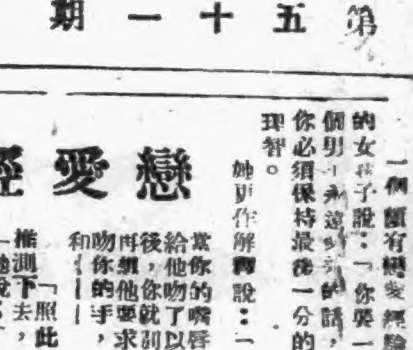 第五十一期
戀愛經
一個頗有戀愛經驗
的女孩子說：「你要一
個男永遠的話，
你必須保持最後一分的
理智。
她更作解釋說：「
當你的嘴唇
給他吻了以
後，你就別
再想他要求
吻你的手，
和——
「照此
推測下去，